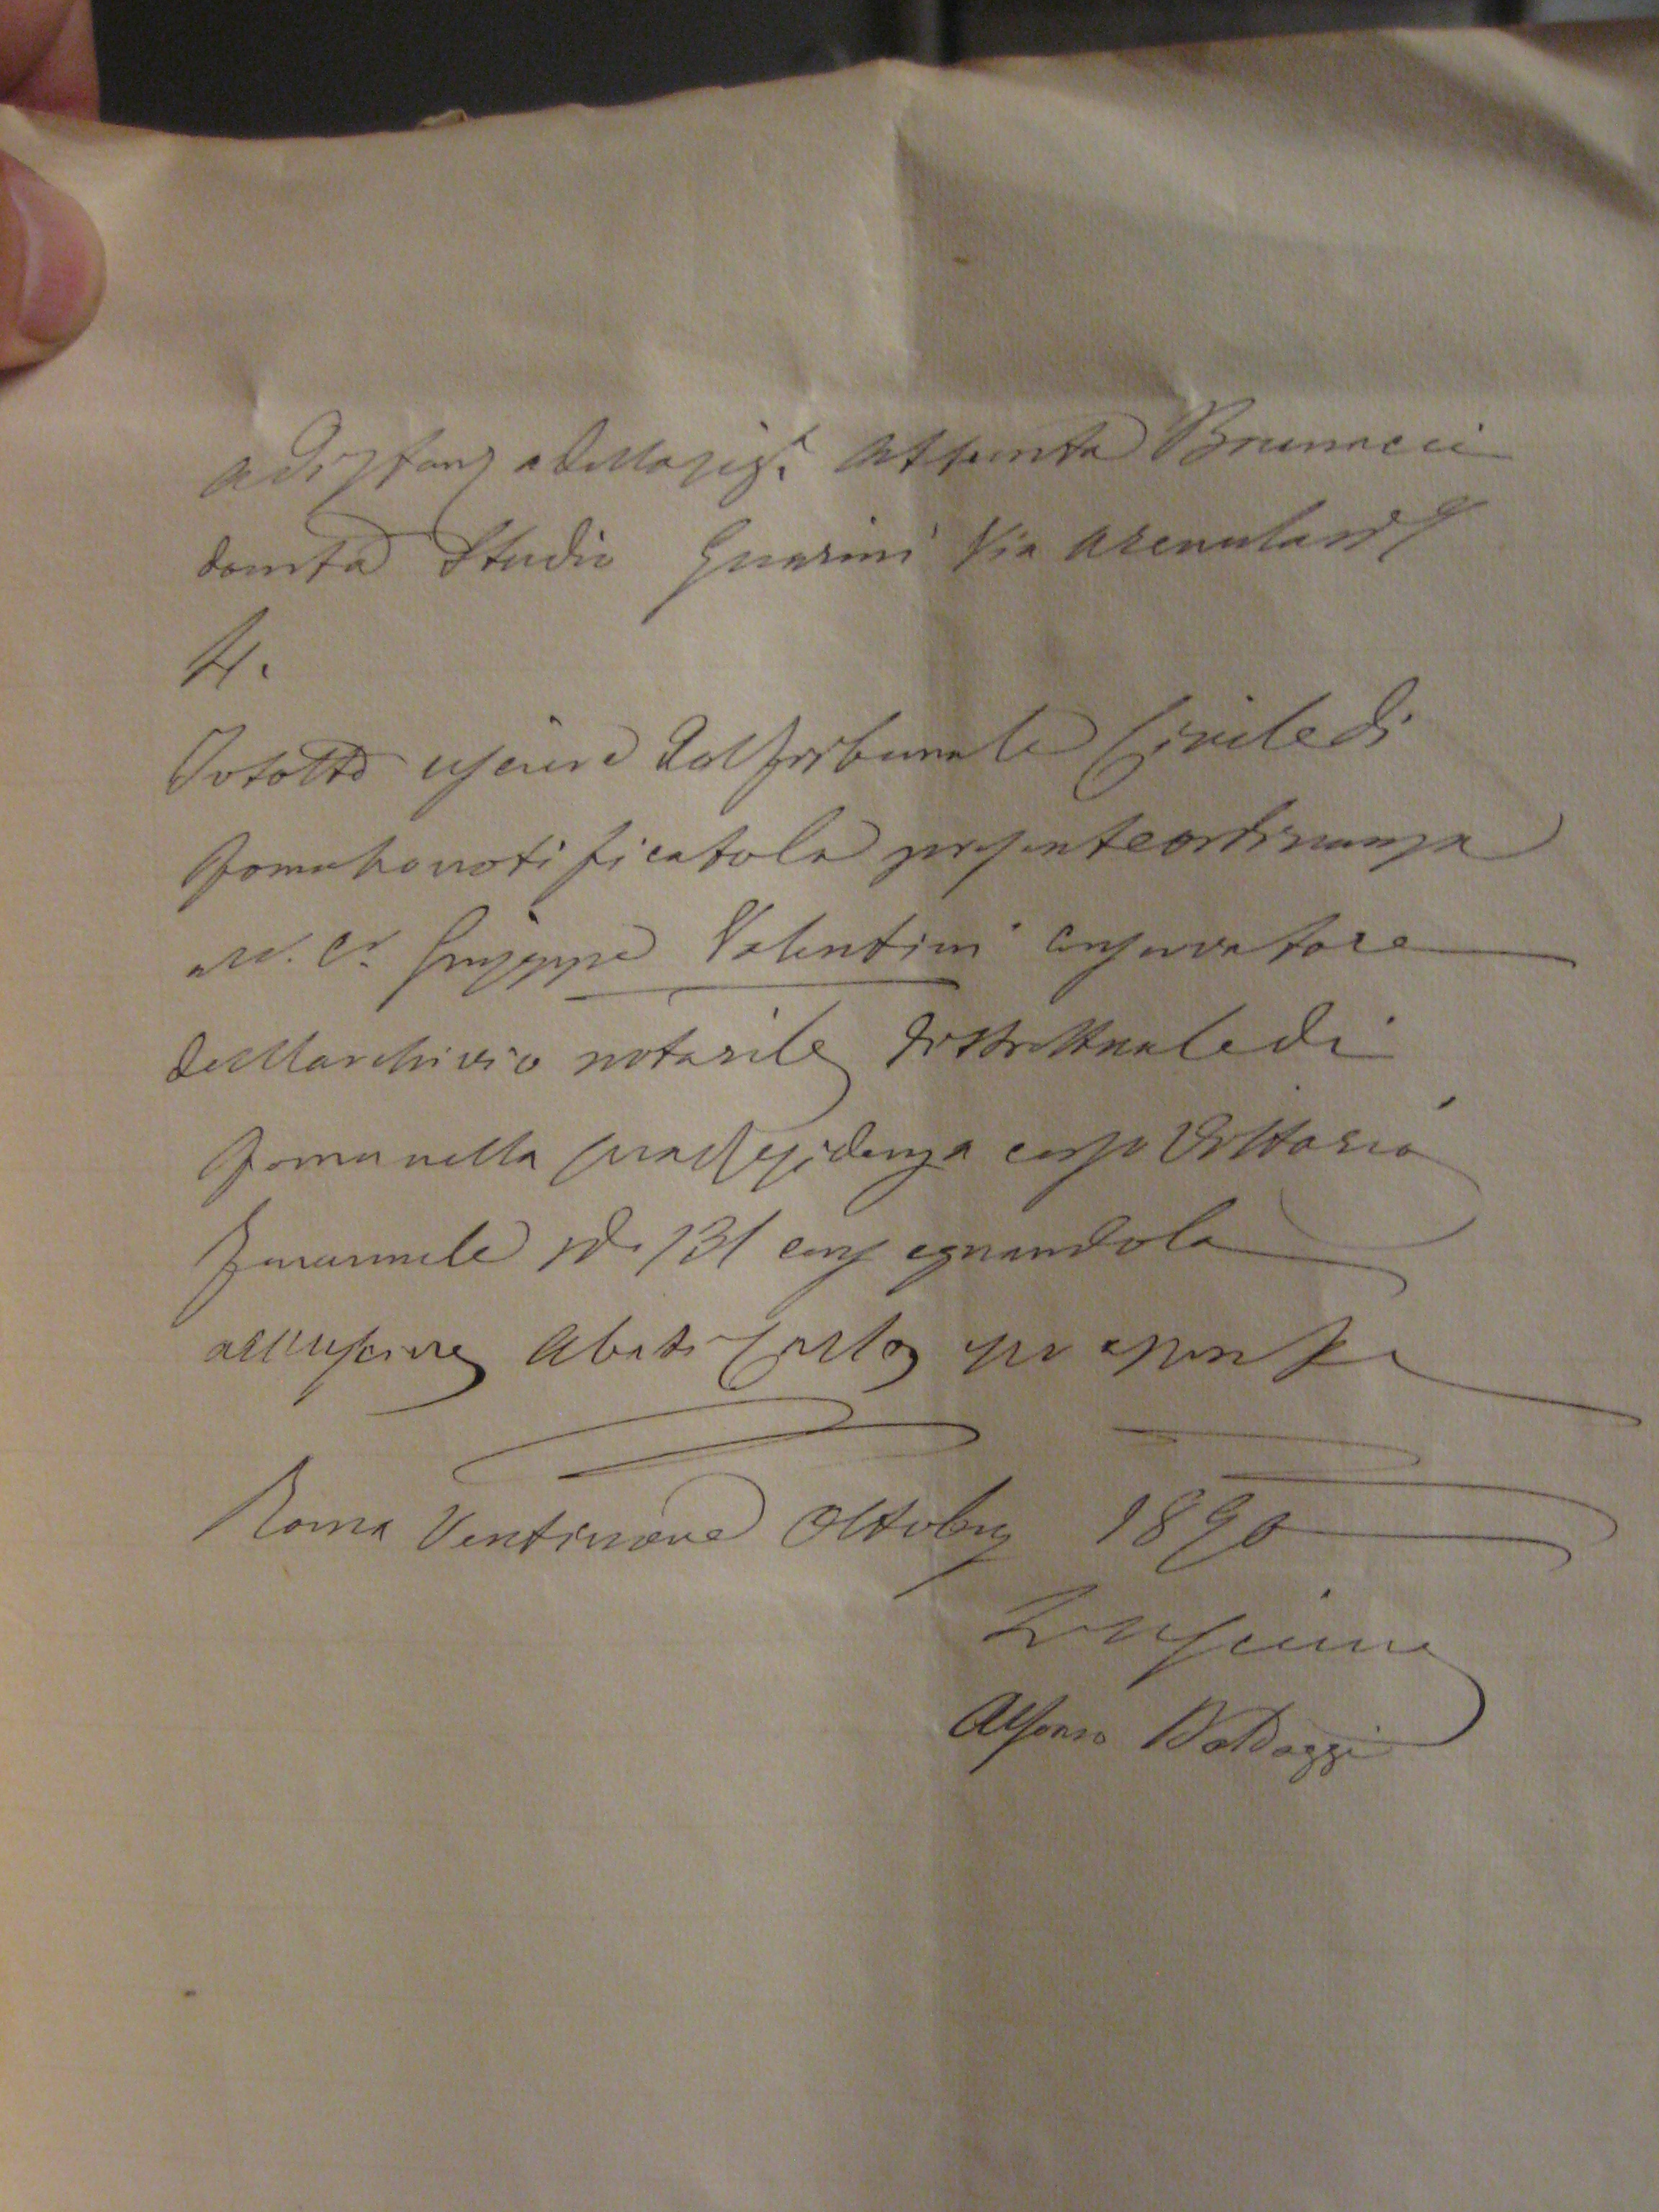 A Istanza della Sig.a Assunta Brunacci
domta Studio Guarini Via Arenula N°
4.
Io sotto usciere del Tribunale Civile di
Roma ho notificato la presente ordinanza
al Giuseppe Valentini conservatore
dell archivio notarile distrettuale di
Roma nella sua residenza corso Vittorio
Emanuele N° 131 consegnandola
all usciere Abati Carlo
Roma Ventinove Ottobre 1890
L usciere
Alfonso Baldazzi